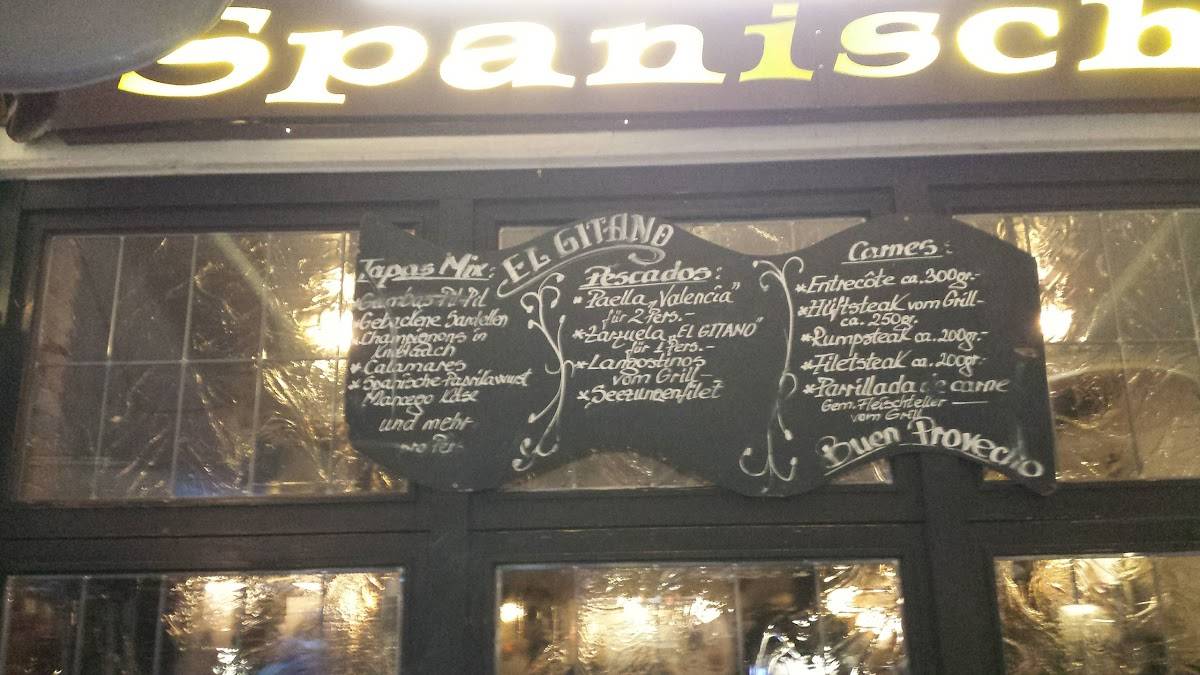 Spanisch
EL GITANO
Tapas Mix:
* Gambas Pil-Pil
* Gebackene Sardellen
* Champignons in
Knoblauch
* Calamares
* Spanische Paprikawurst
Manchego Käse
und mehr
pro Per-
Pescados:
* Paella „Valencia"
für 2 Pers.-
* Zarzuela „EL GITANO"
für 1 Pers.-
* Langostinos
vom Grill-
* Seezungenfilet
Carnes:
* Entrecôte ca. 300gr.-
* Hüftsteak vom Grill-
ca. 250gr.
* Rumpsteak ca. 200gr.-
* Filetsteak ca. 200gr.-
* Parrillada de carne
Gem. Fleischteller —
vom Grill
Buen Provecho